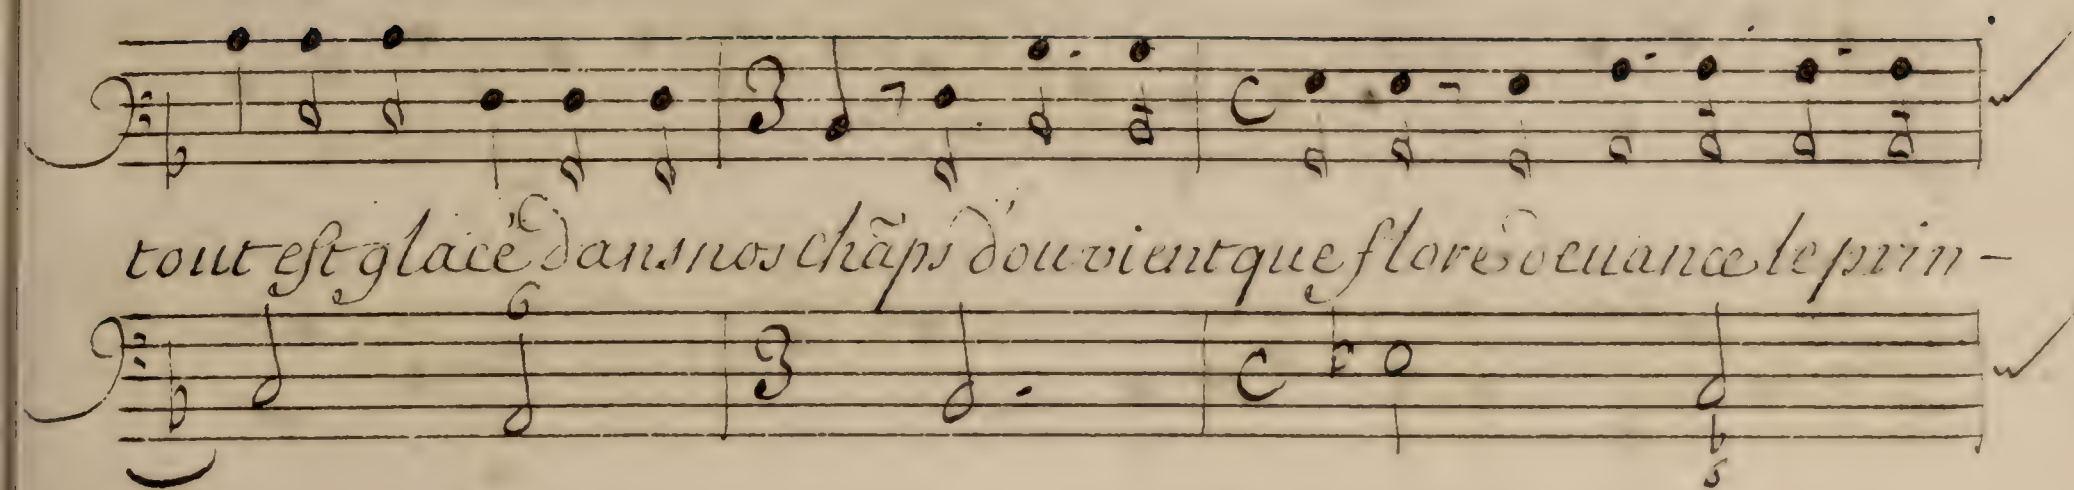 tout est glacé dans nos chãps d'ou vient que flore devance le prin-
6